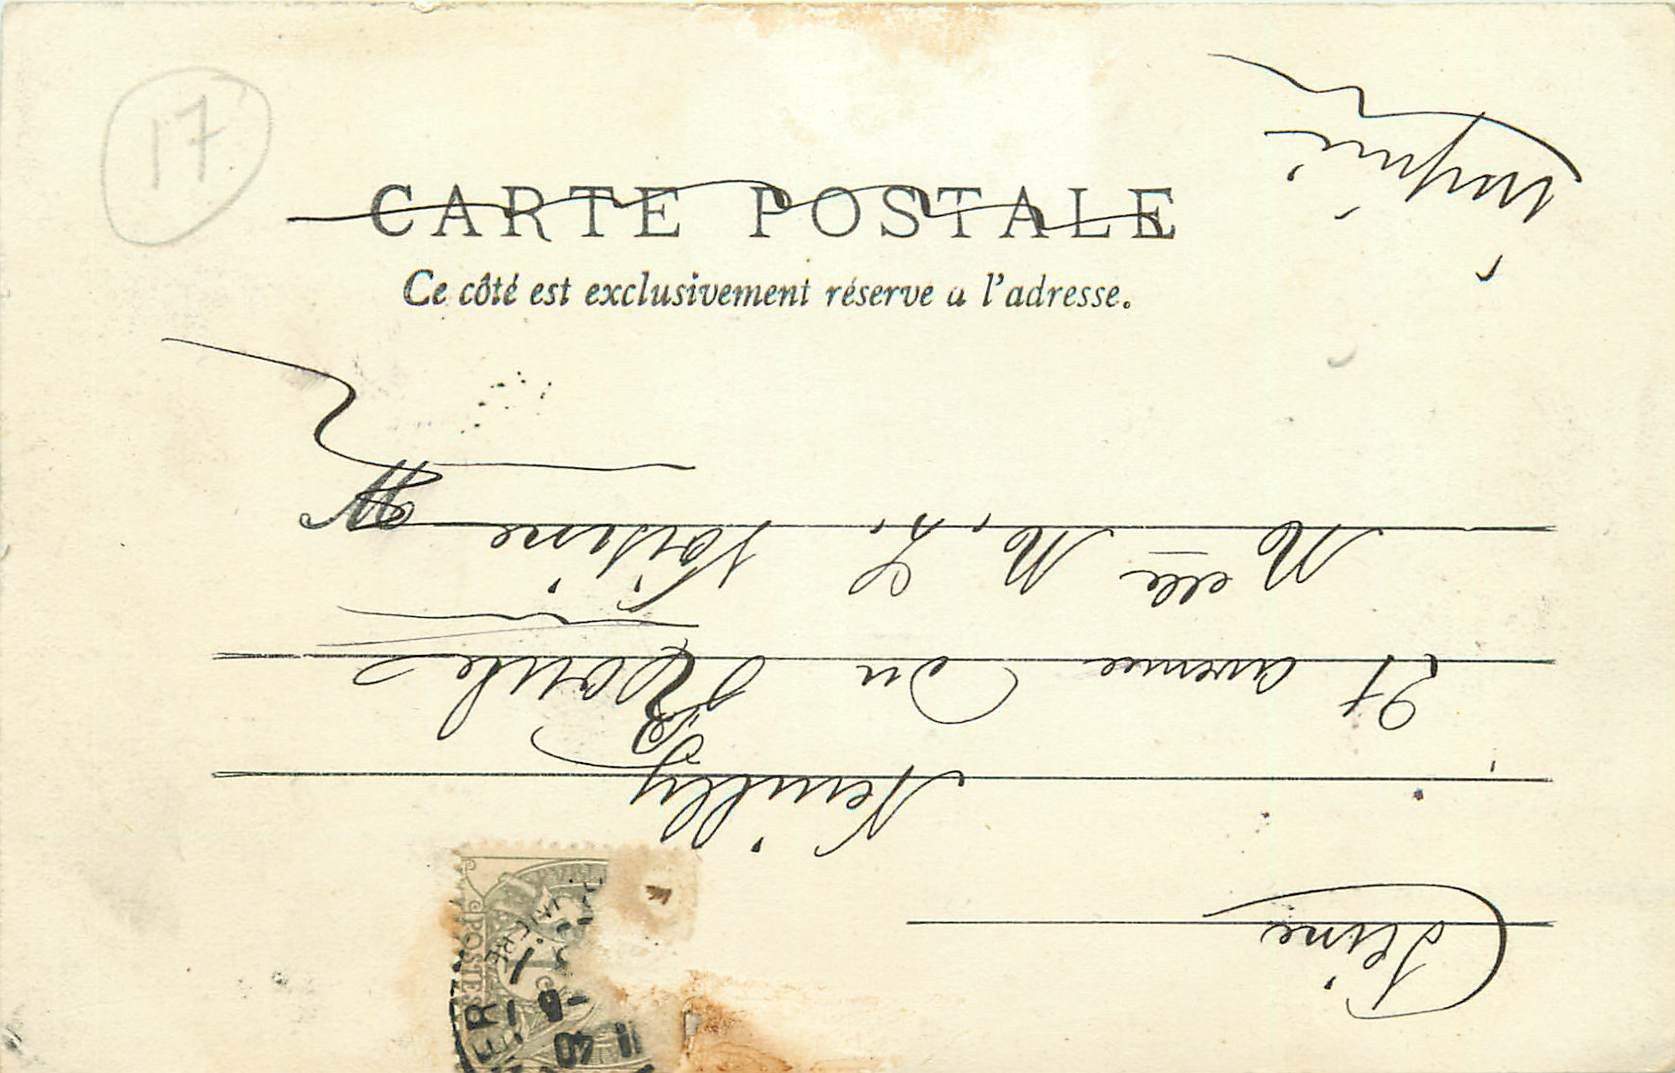 17
CARTE POSTALE
Ce côté est exclusivement réservé à l'adresse.
Imprimé
Melle M. L. Voisine
21 avenue du Roule
Neuilly
Seine
POSTES
1c